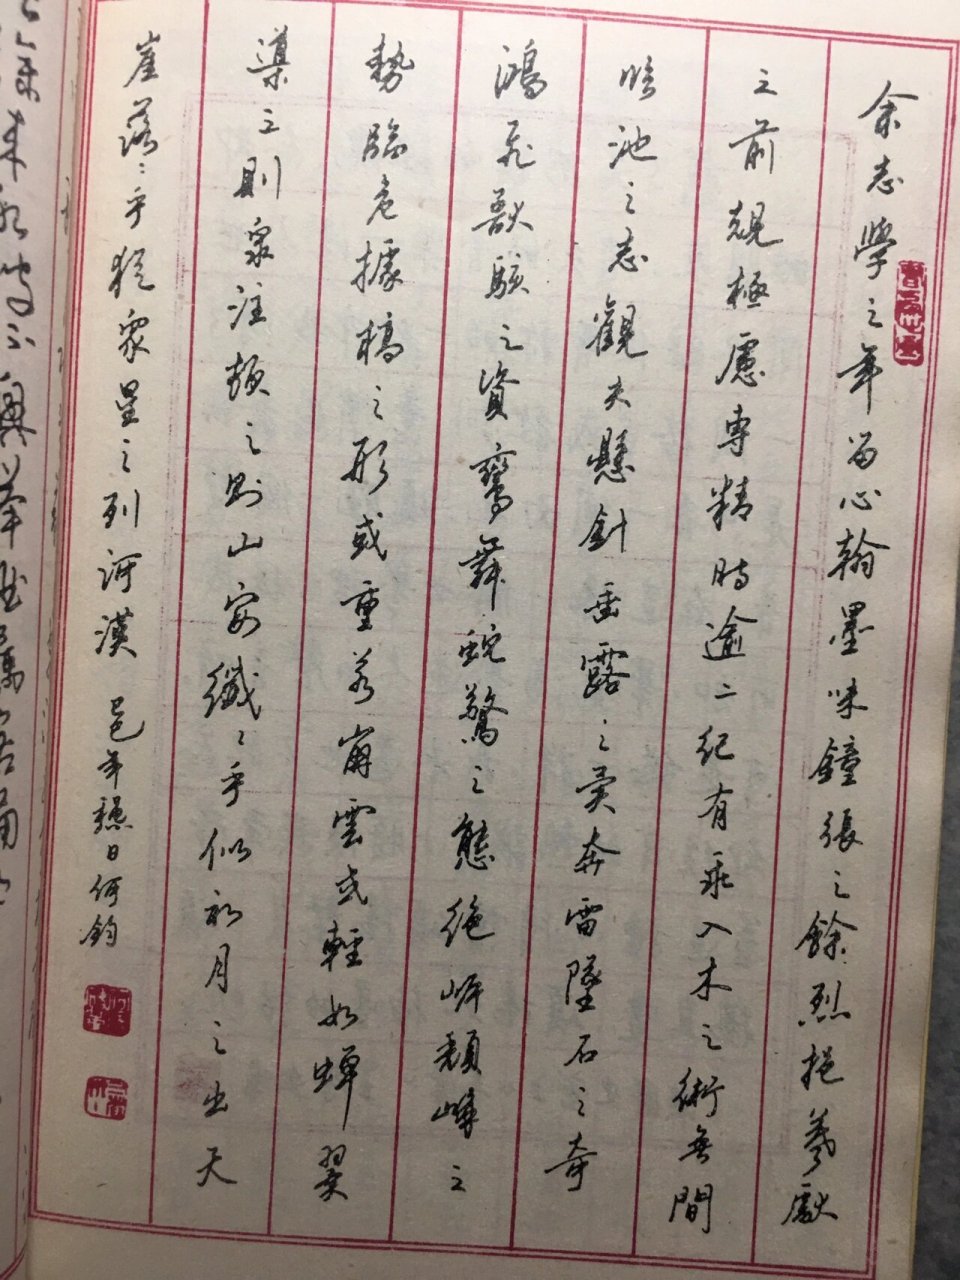 余志學之年留心翰墨味鍾張之餘烈挹羲獻
之前規極慮專精時逾二紀有乖入木之術無間
臨池之志觀夫懸針垂露之異奔雷墜石之奇
鴻飛獸駭之資鸞舞蛇驚之態絕岸頹峰之
勢臨危據槁之形或重若崩雲或輕如蟬翼
導之則泉注頓之則山安纖纖乎似初月之出天
崖落落乎猶眾星之列河漢 年 日何鈞